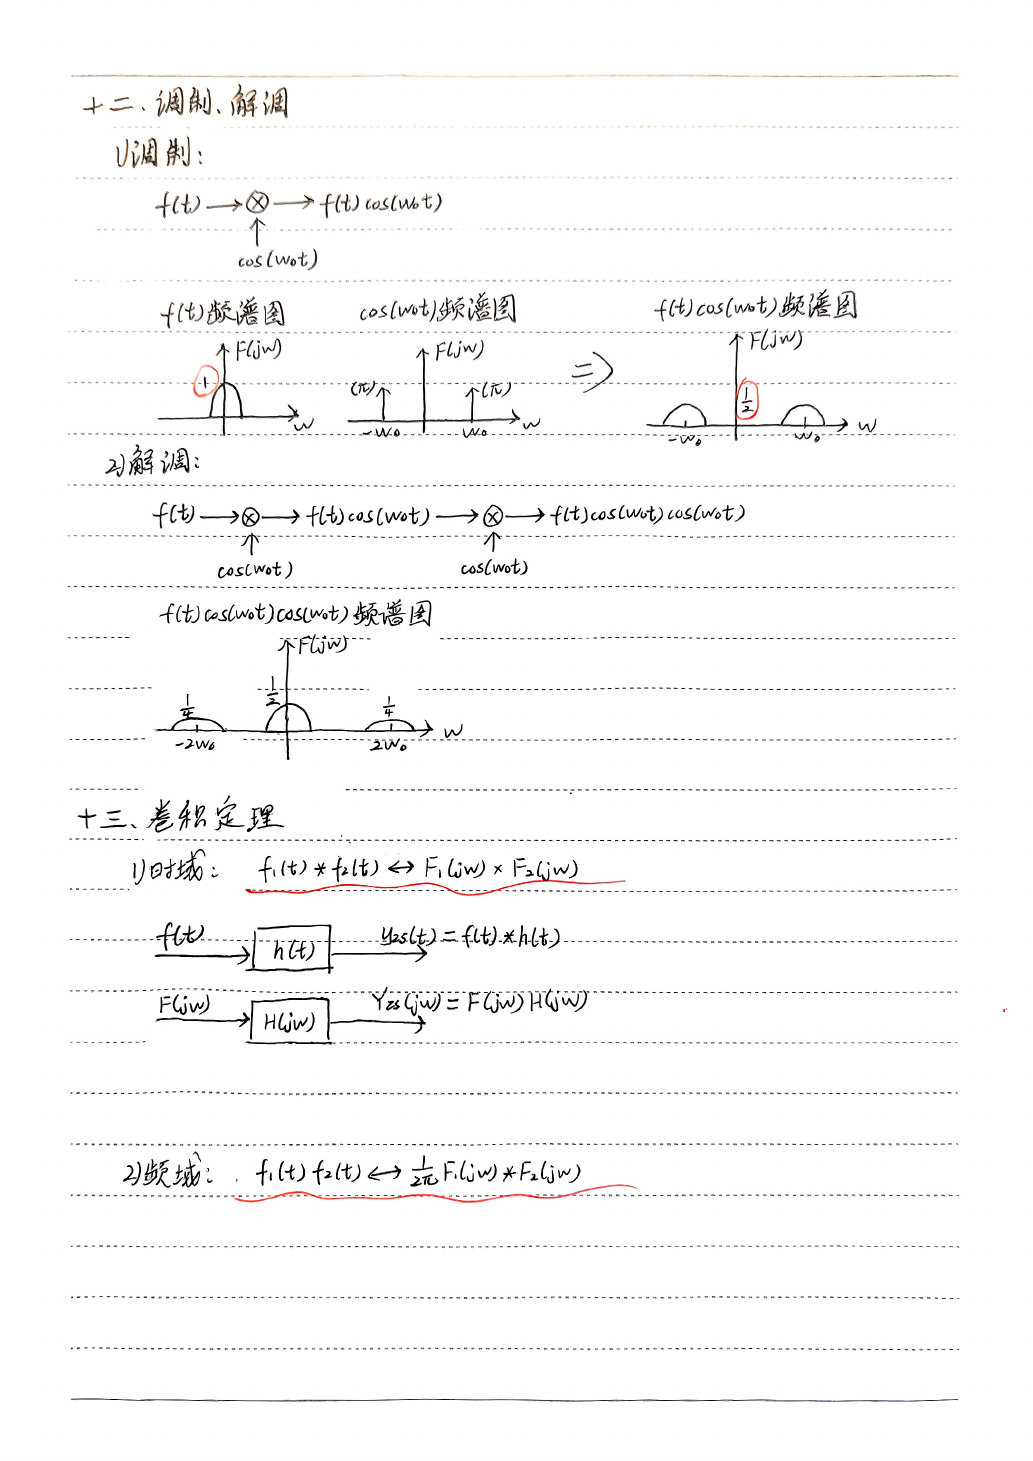 十二、调制、解调
1)调制:
f(t) → ⊗ → f(t)cos(w₀t)
↑
cos(w₀t)
f(t)频谱图 cos(w₀t)频谱图 f(t)cos(w₀t)频谱图
F(jw) F(jw) ⇒ F(jw)
1 (π) (π) 1/2
w -w₀ w₀ w -w₀ w₀ w
2)解调:
f(t) → ⊗ → f(t)cos(w₀t) → ⊗ → f(t)cos(w₀t)cos(w₀t)
↑ ↑
cos(w₀t) cos(w₀t)
f(t)cos(w₀t)cos(w₀t)频谱图
F(jw)
1/4 1/2 1/4
-2w₀ 2w₀ w
十三、卷积定理
1)时域: f₁(t)*f₂(t) ↔ F₁(jw)×F₂(jw)
f(t) h(t) yzs(t)=f(t)*h(t)
F(jw) H(jw) Yzs(jw)=F(jw)H(jw)
2)频域: f₁(t)f₂(t) ↔ 1/2π F₁(jw)*F₂(jw)